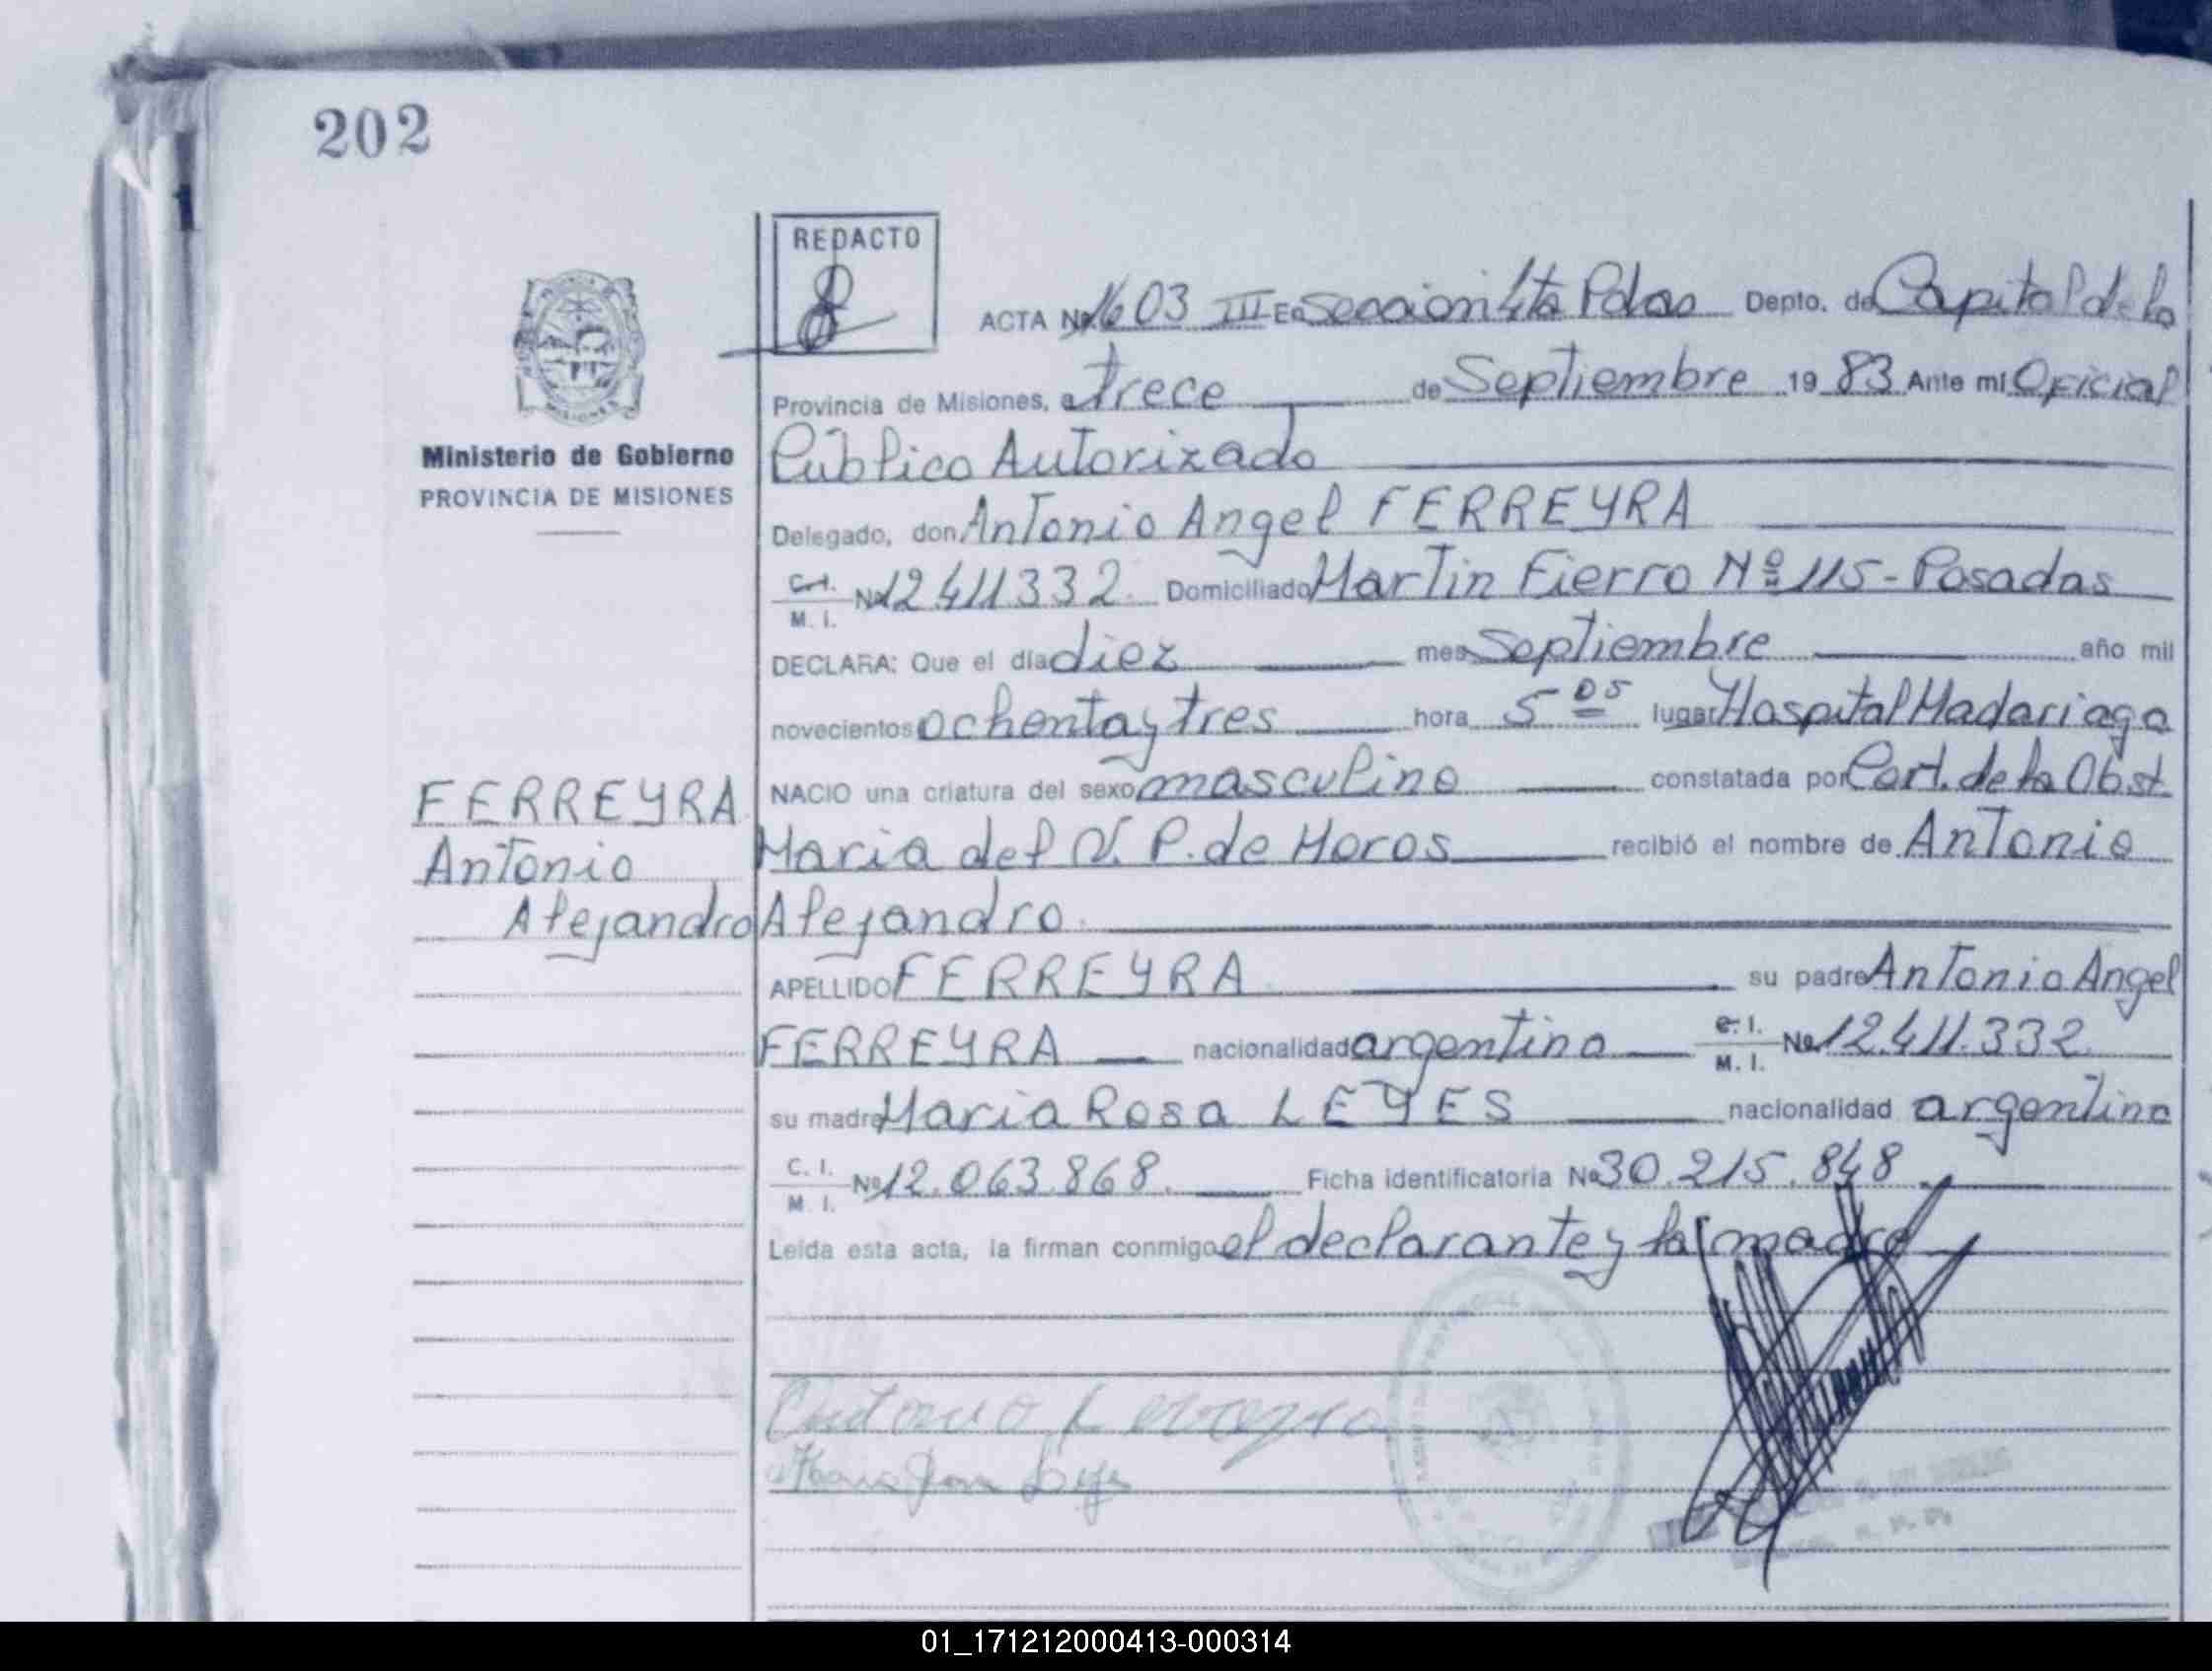 202
REDACTO
ACTA Nº 1603 III En Sección 4ta Pdas Depto. de Capital de la
Provincia de Misiones, a trece de Septiembre 19 83 Ante mí Oficial
Ministerio de Gobierno
PROVINCIA DE MISIONES
Público Autorizado
Delegado, don Antonio Angel FERREYRA
C.I. M. I. Nº 12.411.332. Domiciliado Martin Fierro Nº 115 - Posadas
DECLARA: Que el día diez mes Septiembre año mil
novecientos ochenta y tres hora 5 05 lugar Hospital Madariaga
NACIO una criatura del sexo masculino constatada por Cert. de la Obst.
FERREYRA
Antonio
Alejandro
Maria del V. P. de Moros recibió el nombre de Antonio
Alejandro.
APELLIDO FERREYRA su padre Antonio Angel
FERREYRA nacionalidad argentino C. I. M. I. Nº 12.411.332.
su madre Maria Rosa LEYES nacionalidad argentina
C. I. M. I. Nº 12.063.868. Ficha identificatoria Nº 30.215.848.
Leída esta acta, la firman conmigo el declarante y la madre
Antonio Ferreyra
01_171212000413-000314